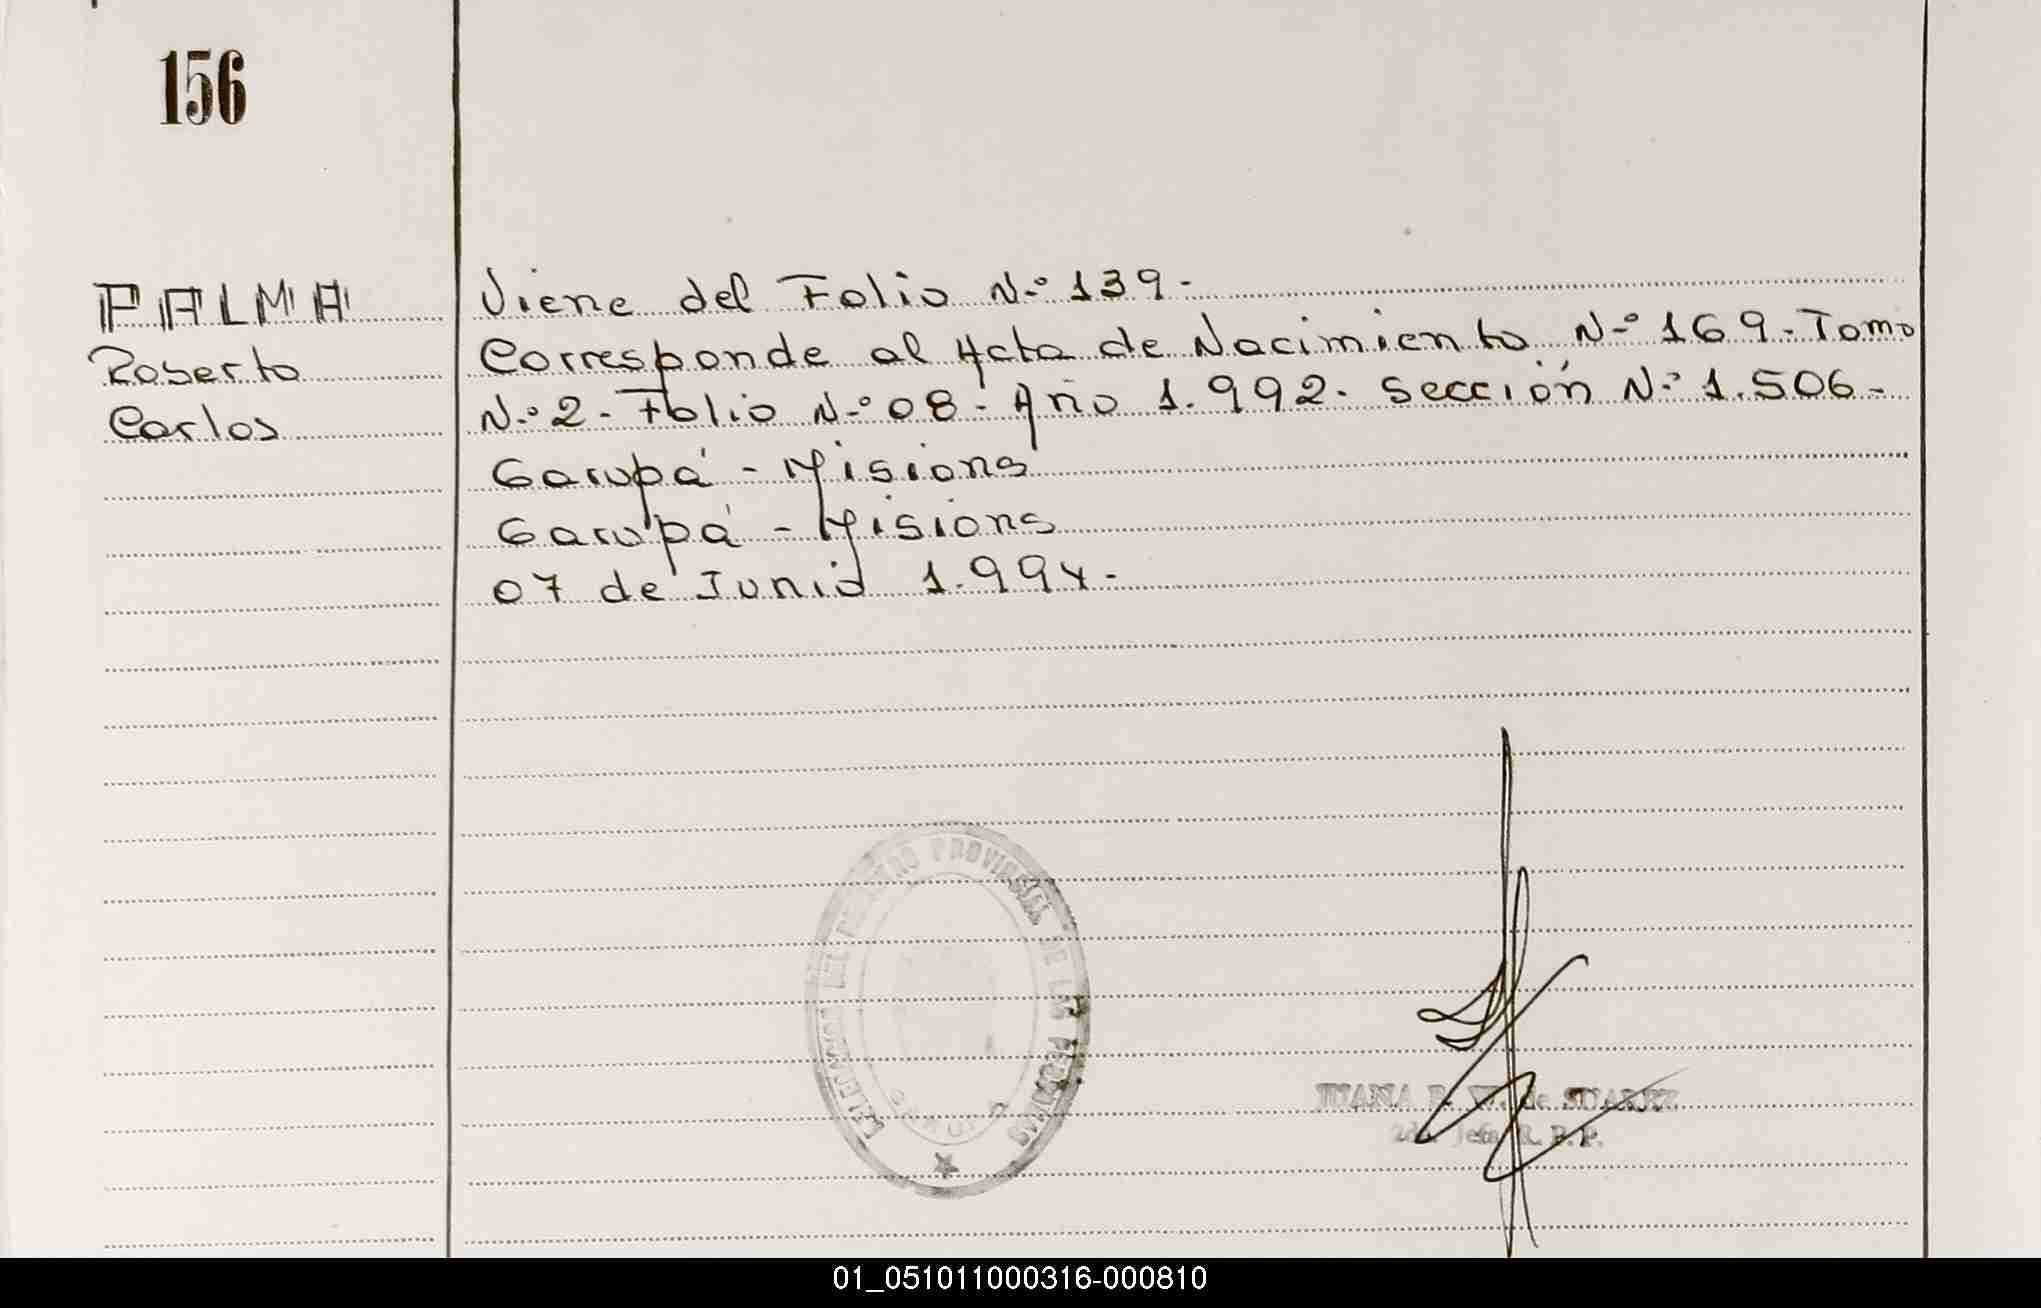 156
PALMA
Roberto
Carlos
Viene del Folio N.º 139.-
Corresponde al Acta de Nacimiento N-º 169.-Tomo
N.º 2-Folio N-º 08- Año 1.992. Sección N.º 1.506.-
Garupá - Misions
Garupá - Misions
07 de Junio 1.994.-
PROVINCIAL DE LAS PERSONAS
JUANA E. W. de SUAREZ
2da. Jefa R. P. P.
01_051011000316-000810